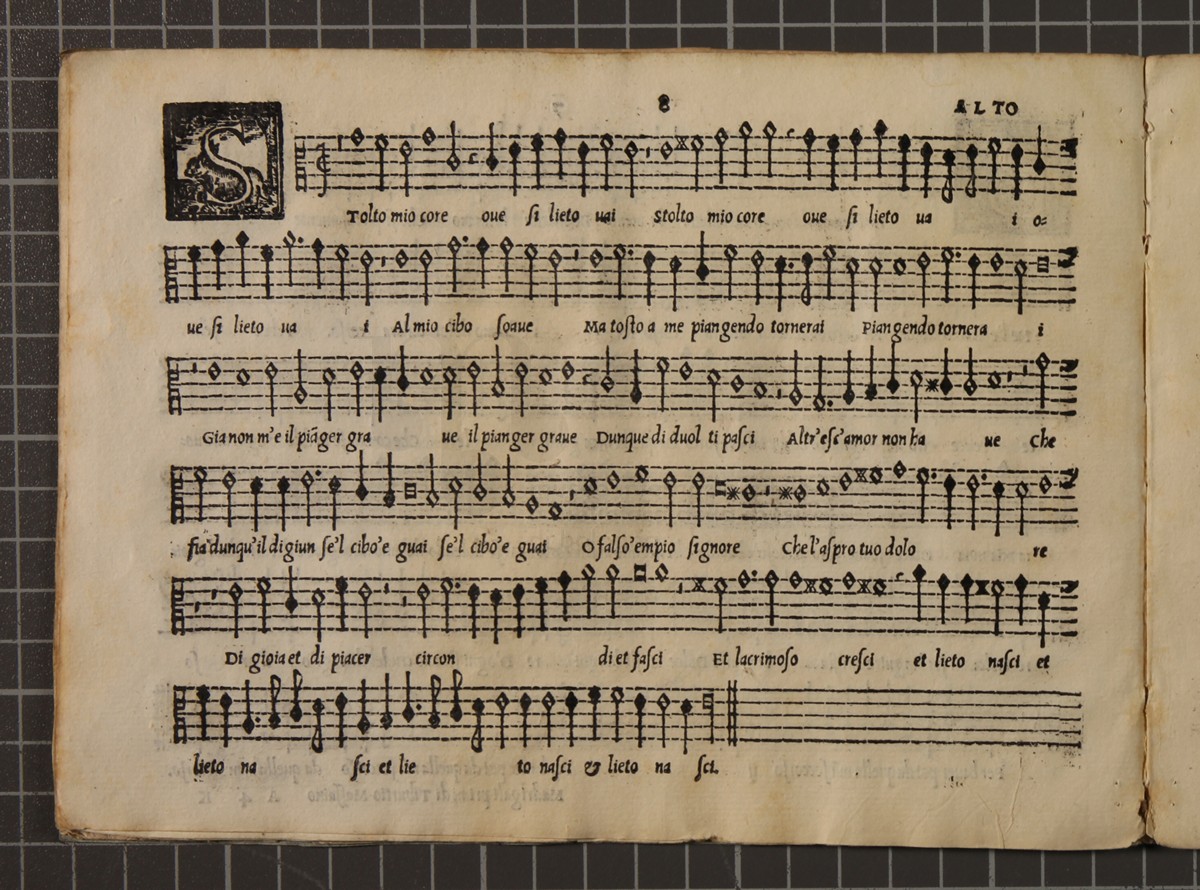 8
ALTO
S
Tolto mio core oue si lieto uai Stolto mio core oue si lieto ua i o=
ue si lieto ua i Al mio cibo soaue Ma tosto a me piangendo tornerai Piangendo tornera i
Gia non m'e il piãger gra ue il pianger graue Dunque di duol ti pasci Altr'esc'amor non ha ue Che
fia dunqu'il digiun se'l cibo'e guai se'l cibo'e guai O falso'empio signore Che l'aspro tuo dolo re
Di gioia et di piacer circon di et fasci Et lacrimoso cresci et lieto nasci et
lieto na sci et lie to nasci & lieto na sci.